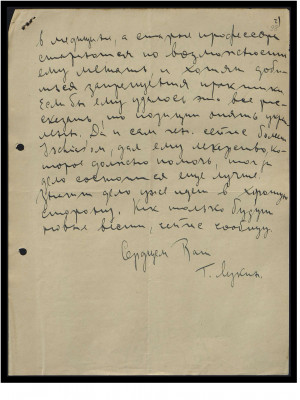 в медицине, а старые профессора
стараются по возможности
ему мешать, и хотят добиться
запрещения практики
Если бы ему удалось это все рассказать,
то позиции опять
Да и сам сейчас болен
дал ему лекарство, которое
должно помочь, тогда
дело состоится еще лучше
Значит дело уже идет в хорошую
сторону. Как только будут
новые вести, сейчас сообщу.
Сердцем Ваш
Г. Лукин.